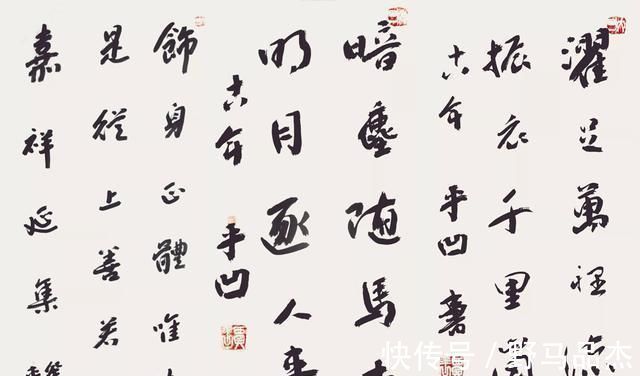 濯足萬裡
振衣千里
十六年 平凹書
暗塵隨馬去
明月逐人來
十六年 平凹
飾身正體唯
是從上善若
嘉祥延集
快传号 / 野马品杰